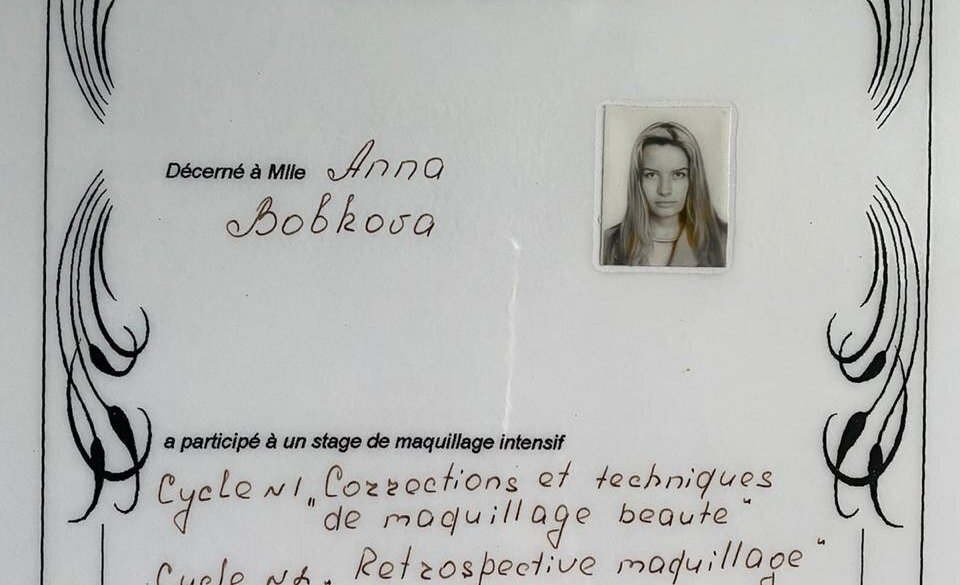 Décerné à Mlle Anna
Bobkova
a participé à un stage de maquillage intensif
Cycle N1 „Corrections et techniques
de maquillage beaute“
Cycle N2. Retrospective maquillage“